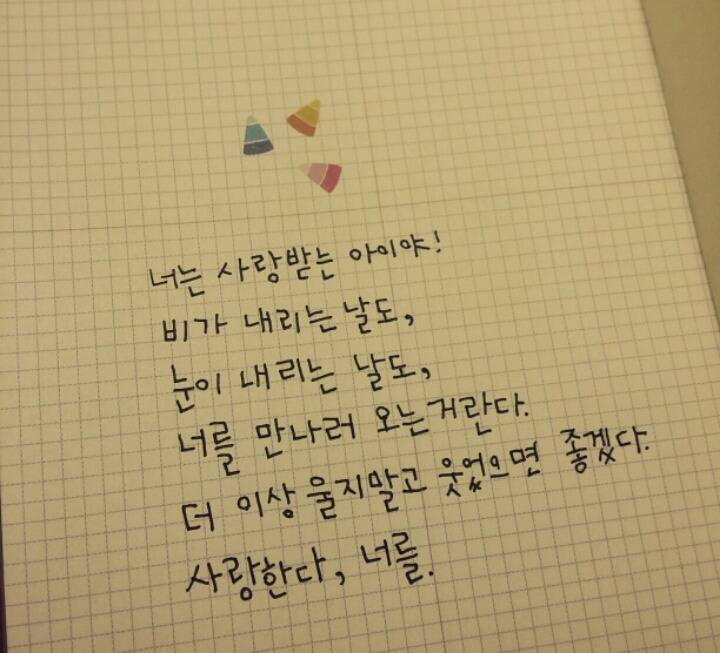 너는 사랑받는 아이야!
비가 내리는 날도,
눈이 내리는 날도,
너를 만나러 오는거란다.
더 이상 울지말고 웃었으면 좋겠다.
사랑한다, 너를.